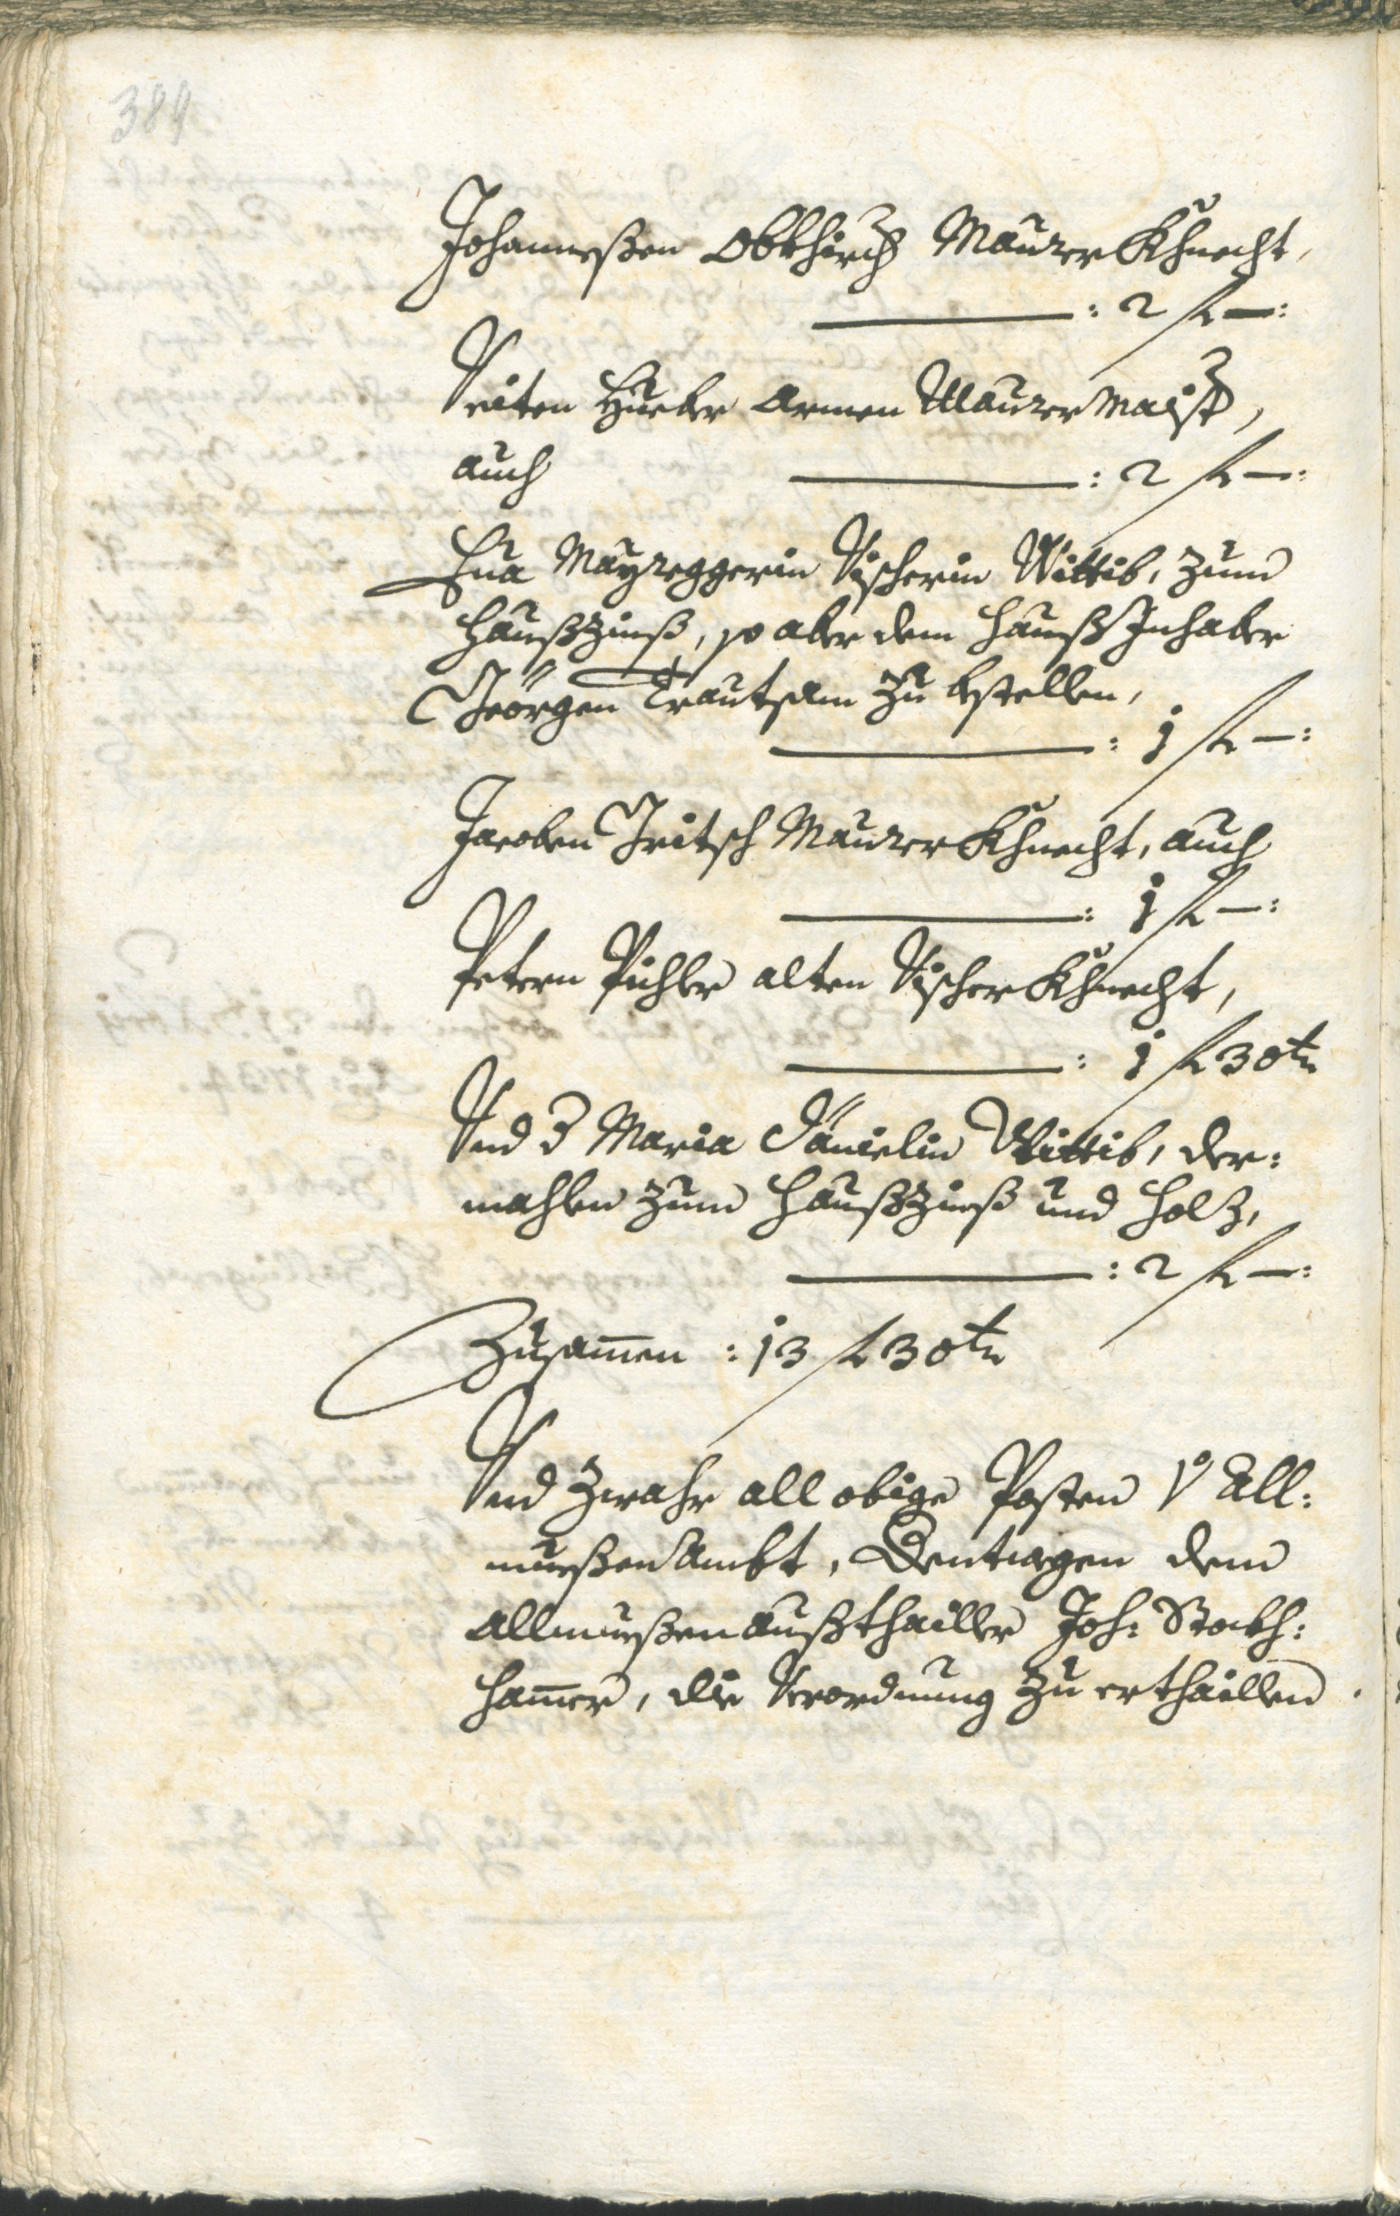 384
Johanneßen Obkhirch Maurer Khnecht,
: 2 fl —:
Veiten Hueber Armen Maurer Maist,
auch : 2 fl —:
Eva Mayreggerin Vischerin Wittib, zum
Haußzinß, so aber dem Hauß Inhaber
Geörgen Trautsam zu bstellen,
: 1 fl —:
Jacoben Fritsch Maurer Khnecht, auch
: 1 fl —:
Petern Pichler alten Vischer Khnecht,
: 1 fl 30 kr
Und Maria Dänielin Wittib, der:
mahlen zum Haußzinß und Holz,
: 2 fl —:
Zusamen : 13 fl 30 kr
Und zwahr all obige Posten All:
mueßen Ambt, Dentwegen dem
Allmueßen Außthailler Joh: Stockh:
hamer, die Verordnung zu erthaillen.